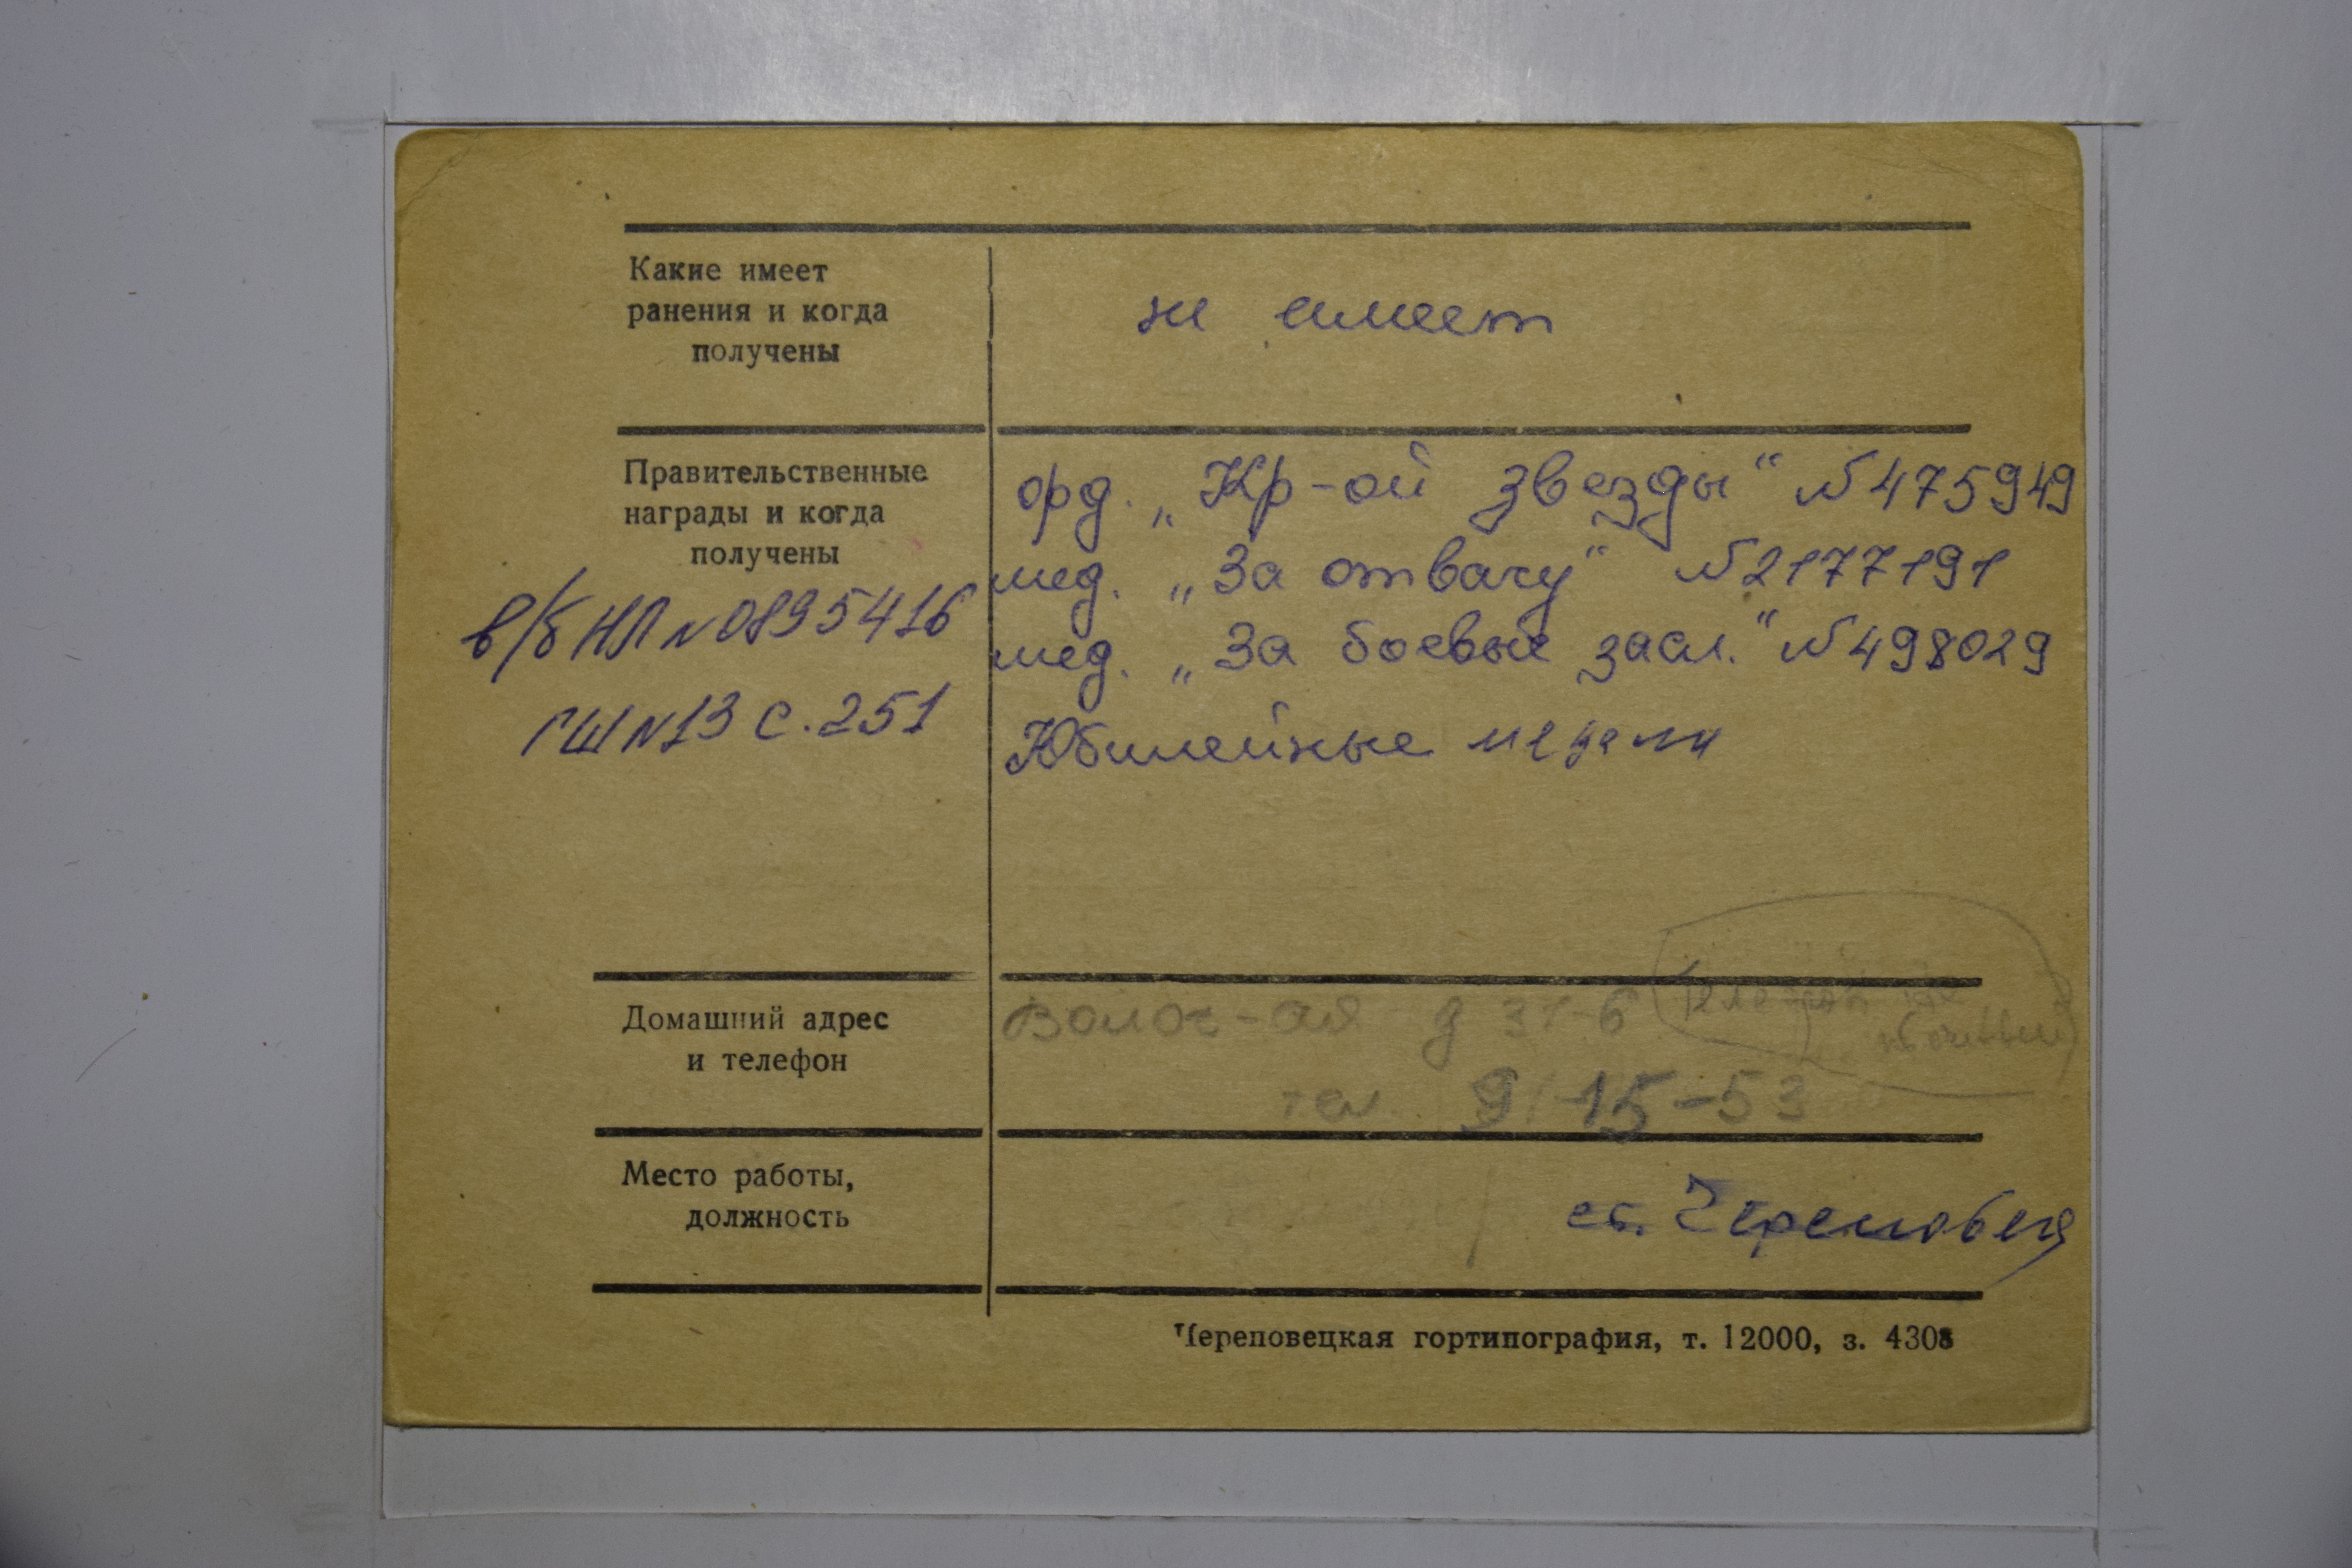 Какие имеет
ранения и когда
получены
не имеет
Правительственные
награды и когда
получены
в/б НЛ №0895416
ГШ №13 с. 251
орд. „Кр-ой звезды“ №475949
мед. „За отвагу“ №2177191
мед. „За боевые засл.“ №498029
Юбилейные медали
Домашний адрес
и телефон
Волог-ая д 31-6
тел. 9-15-53
Место работы,
должность
ст. Череповец
Череповецкая гортипография, т. 12000, з. 4308